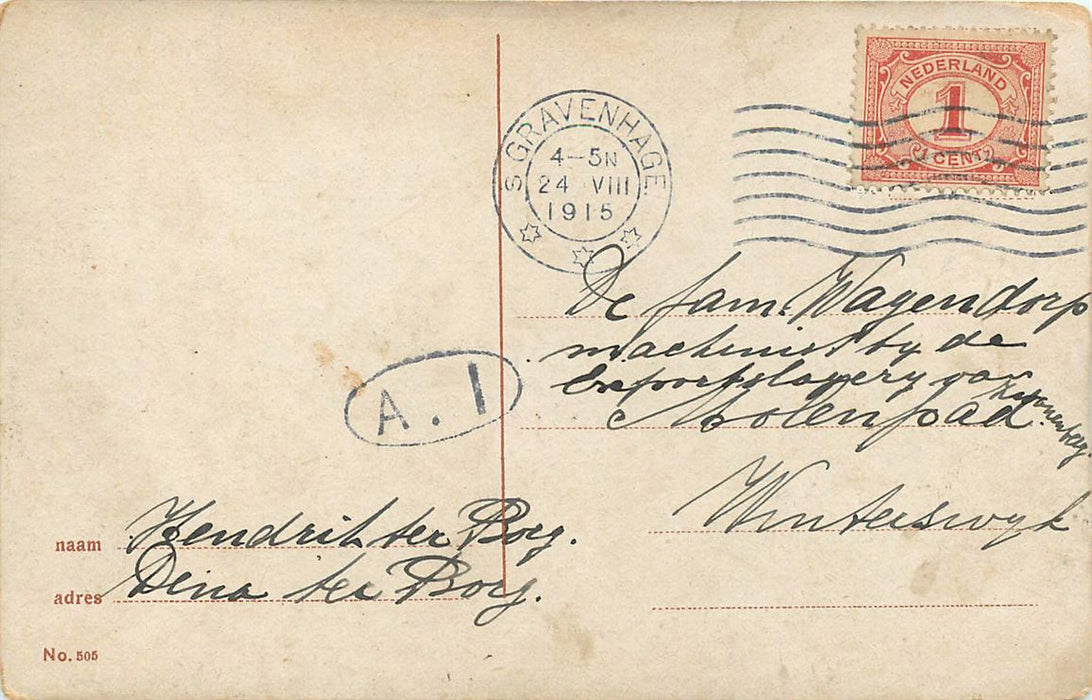 NEDERLAND
1
CENT
S GRAVENHAGE
4–5N
24 VIII
1915
De fam. Wagendorp
machinist by de
Exportslagery van
Molenpad
Winterswyk
A. I
naam Hendrik ter Borg.
adres Dina ter Borg.
No. 505